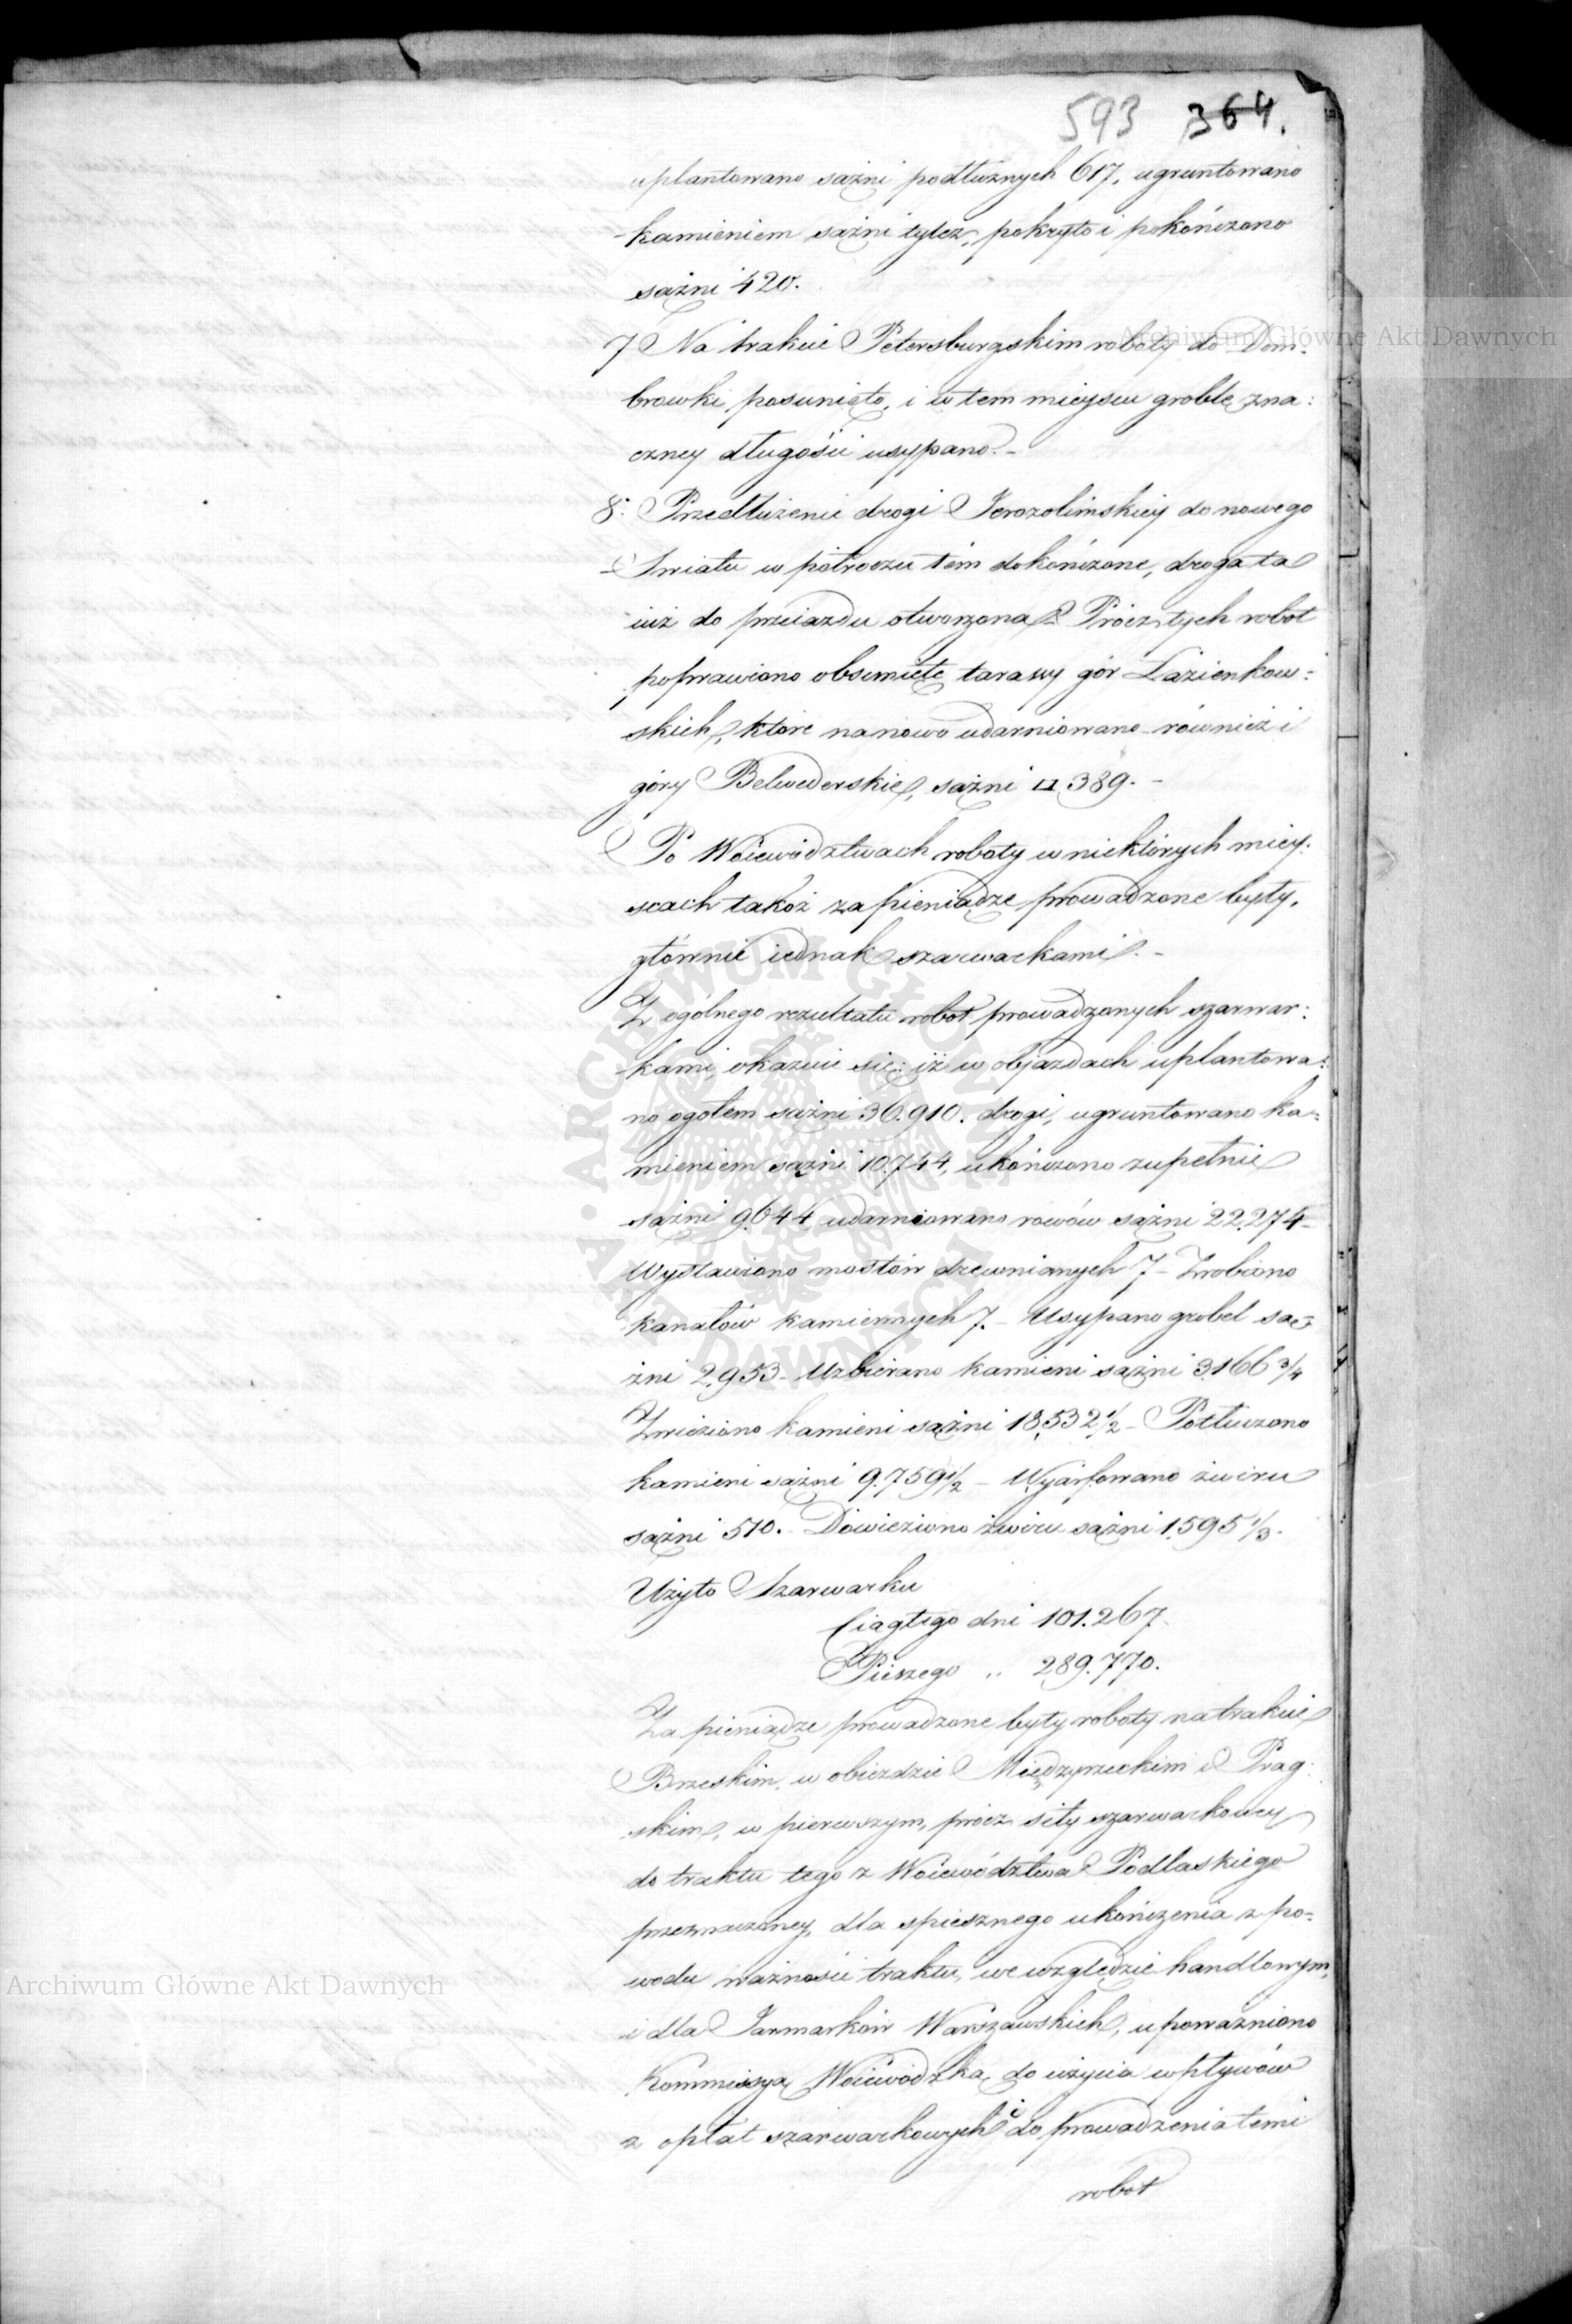 593 364.
uplantowano sążni podłużnych 617, ugruntowano
kamieniem sążni tyleż, pokryto i pokończono
sążni 420.
7 Na trakcie Petersburgskim roboty do Dom:
browki posunięto, i w tem mieyscu groblę zna:
czney długości usypano. -
8. Przedłużenie drogi Jerozolimskiey do nowego
Swiatu w półroczu tém dokończone, droga ta
iuż do przeiazdu otworzona. Prócz tych robot
poprawiono obsunięte tarasy gór Łazienkow:
skich, które nanowo udarniowano również i
góry Belwederskie, sążni □ 389. -
Po Woiewództwach roboty w niektórych miey:
scach takoż za pieniądze prowadzone były,
głównie iednak szarwarkami. -
Z ogólnego rezultatu robot prowadzonych szarwar:
kami, okazuie się: iż w objazdach uplantowa:
no ogołem sążni 36.910. drogi, ugruntowano ka=
mieniem sążni 10.744, ukończono zupełnie
sążni 9.644 udarniowano rowów sążni 22.274 -
Wystawiono mostów drewnianych 7 - Zrobiono
kanałów kamiennych 7. - Usypano grobel są=
żni 2.953 - Uzbierano kamieni sążni 3.166 3/4
Zwieziono kamieni sążni 18.532 1/2 - Potłuczono
kamieni sążni 9.759 1/2 - Wyarfowano żwiru
sążni 510. - Dowieziono żwiru sążni 1.595 1/3.
Użyto Szarwarku
Ciągłego dni 101.267.
Pieszego „ 289.770.
Za pieniądze prowadzone były roboty na trakcie
Brzeskim, w obieździe Międzyrzeckim i Prag:
skim, w pierwszym, prócz siły szarwarkowey
do traktu tego z Woiewództwa Podlaskiego
przeznaczoney, dla spiesznego ukończenia z po=
wodu ważności traktu, we względzie handlowym,
i dla Jarmarków Warszawskich, upoważniono
Kommissyą Woiewódzką do użycia wpływów
z opłat szarwarkowych i do prowadzenia temi
robot
Archiwum Główne Akt Dawnych
Archiwum Główne Akt Dawnych
ARCHIWUM GŁÓWNE AKT DAWNYCH